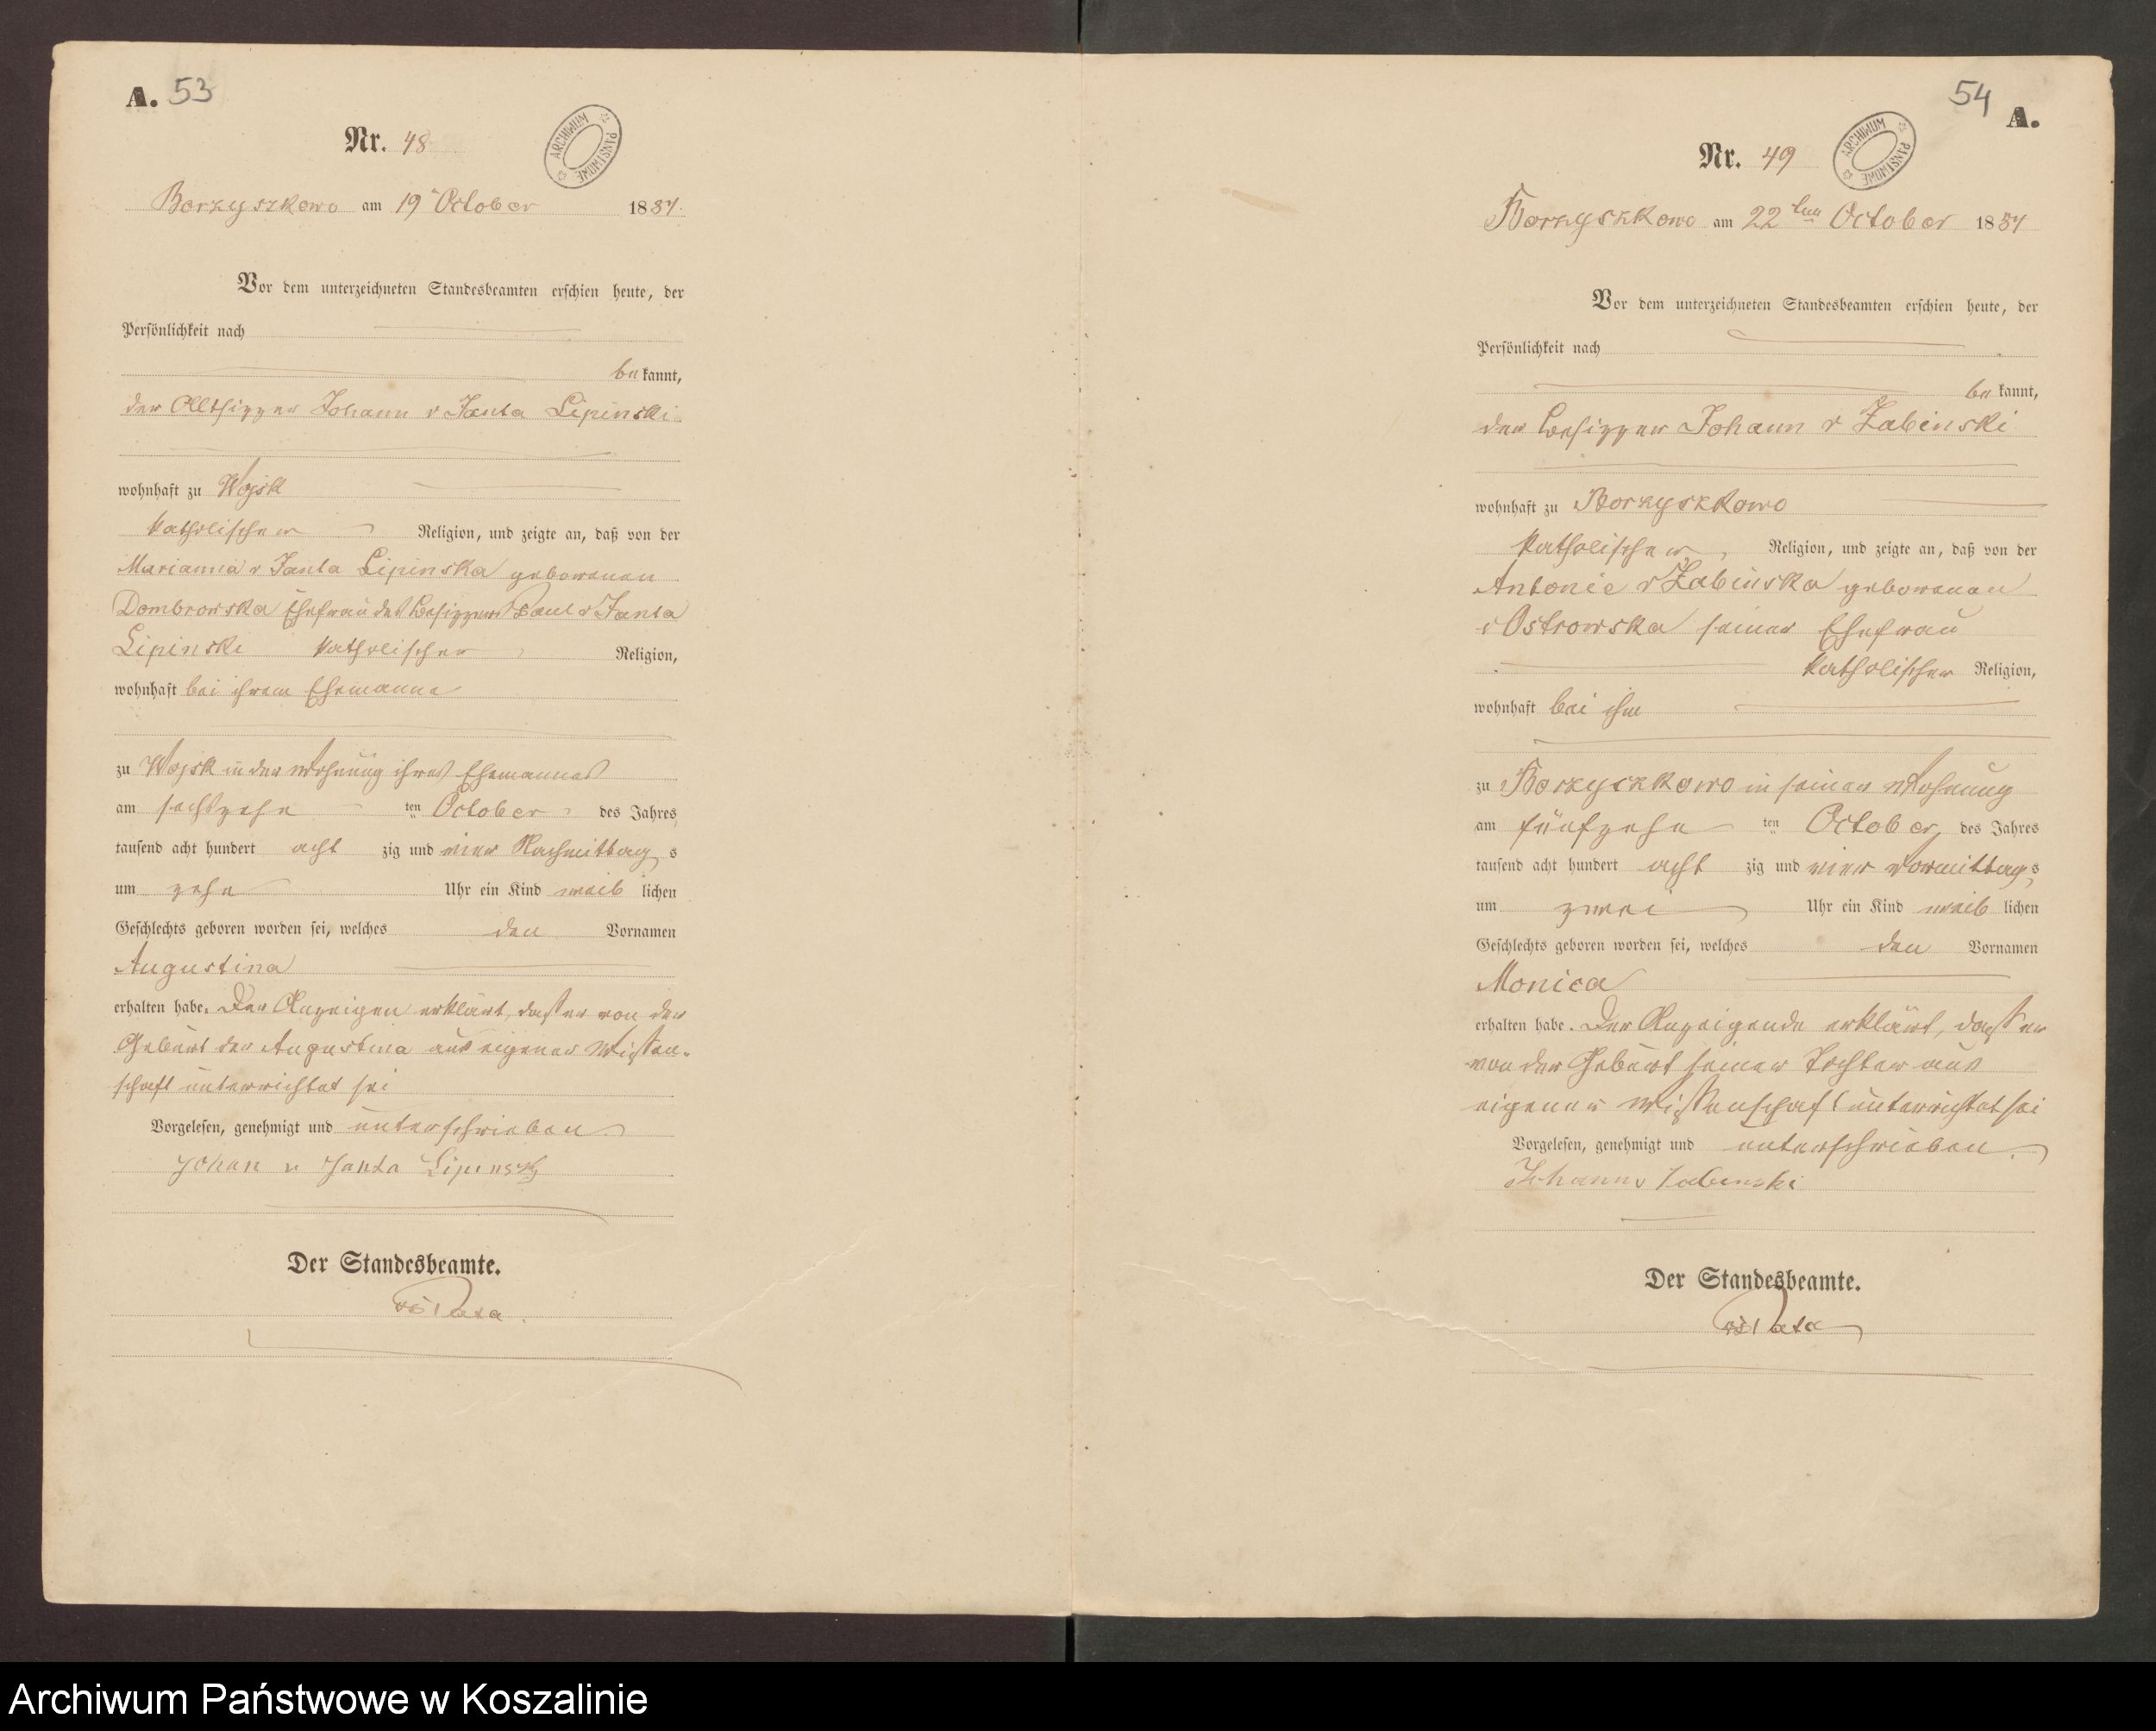 A. 53
Nr. 48
ARCHIWUM PAŃSTWOWE
Borzyszkowo am 19 October 1884.
Vor dem unterzeichneten Standesbeamten erschien heute, der
Persönlichkeit nach
be kannt,
der Altsitzer Johann v Janta Lipinski
wohnhaft zu Wojsk
katholischer Religion, und zeigte an, daß von der
Marianna v Janta Lipinska geborenen
Dombrowska Ehefrau des Besitzers Paul v Janta
Lipinski katholischer Religion,
wohnhaft bei ihrem Ehemanne
zu Wojsk in der Wohnung ihres Ehemannes
am sechszehn ten October des Jahres
tausend acht hundert acht zig und vier Nachmittag s
um zehn Uhr ein Kind weib lichen
Geschlechts geboren worden sei, welches den Vornamen
Augustina
erhalten habe. Der Anzeigen erklärt, daß er von der
Geburt der Augustina aus eigener Wissen-
schaft unterrichtet sei
Vorgelesen, genehmigt und unterschrieben
Johan v Janta Lipinsky
Der Standesbeamte.
54 A.
Nr. 49
ARCHIWUM PAŃSTWOWE
Borzyszkowo am 22 ten October 1884
Vor dem unterzeichneten Standesbeamten erschien heute, der
Persönlichkeit nach
be kannt,
der Besitzer Johann v Zabinski
wohnhaft zu Borzyszkowo
katholischer Religion, und zeigte an, daß von der
Antonie v Zabinska geborenen
v Ostrowska seiner Ehefrau
katholischer Religion,
wohnhaft bei ihm
zu Borzyszkowo in seiner Wohnung
am fünfzehn ten October des Jahres
tausend acht hundert acht zig und vier Vormittag s
um zwei Uhr ein Kind weib lichen
Geschlechts geboren worden sei, welches den Vornamen
Monica
erhalten habe. Der Anzeigende erklärt, daß er
von der Geburt seiner Tochter aus
eigener Wissenschaft unterrichtet sei
Vorgelesen, genehmigt und unterschrieben.
Johann v Zabinski
Der Standesbeamte.
Archiwum Państwowe w Koszalinie